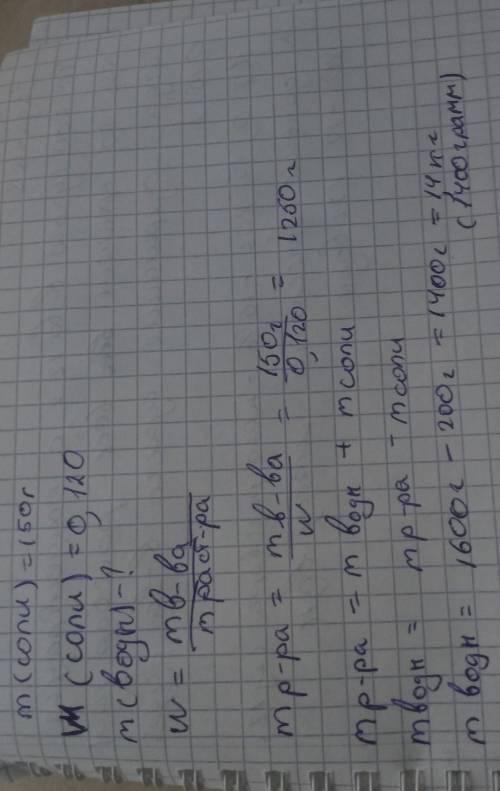 m (соли) = 150г
W (соли) = 0,120
m (воды) - ?
w = m в-ва / m раст-ра
m р-ра = m в-ва / w = 150г / 0,120 = 1250 г
m р-ра = m воды + m соли
m воды = m р-ра - m соли
m воды = 1600г - 200г = 1400г = 1,4 кг
(1400 грамм)